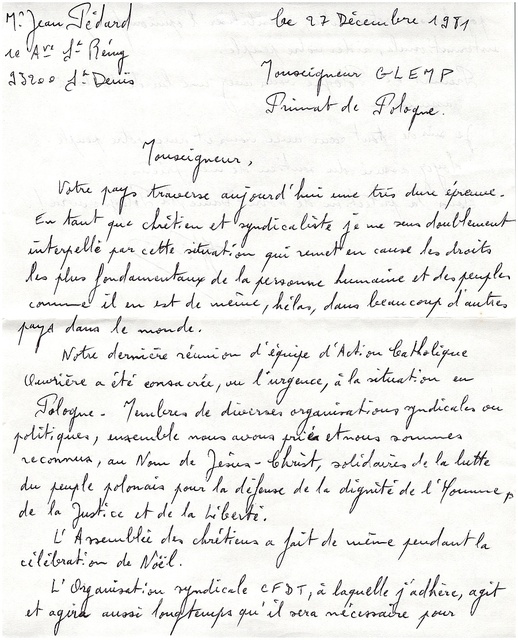 Mr Jean Pédard
1e Ave St Rémy
93200 St Denis
Le 27 Décembre 1981
Monseigneur GLEMP
Primat de Pologne.
Monseigneur,
Votre pays traverse aujourd'hui une très dure épreuve.
En tant que chrétien et syndicaliste je me sens doublement
interpellé par cette situation qui remet en cause les droits
les plus fondamentaux de la personne humaine et des peuples
comme il en est de même, hélas, dans beaucoup d'autres
pays dans le monde.
Notre dernière réunion d'équipe d'Action Catholique
Ouvrière a été consacrée, vu l'urgence, à la situation en
Pologne - Membres de diverses organisations syndicales ou
politiques, ensemble nous avons prié et nous sommes
reconnus, au Nom de Jésus-Christ, solidaires de la lutte
du peuple polonais pour la défense de la dignité de l'Homme,
de la Justice et de la Liberté.
L'Assemblée des chrétiens a fait de même pendant la
célébration de Noël.
L'Organisation syndicale CFDT, à laquelle j'adhère, agit
et agira aussi longtemps qu'il sera nécessaire pour